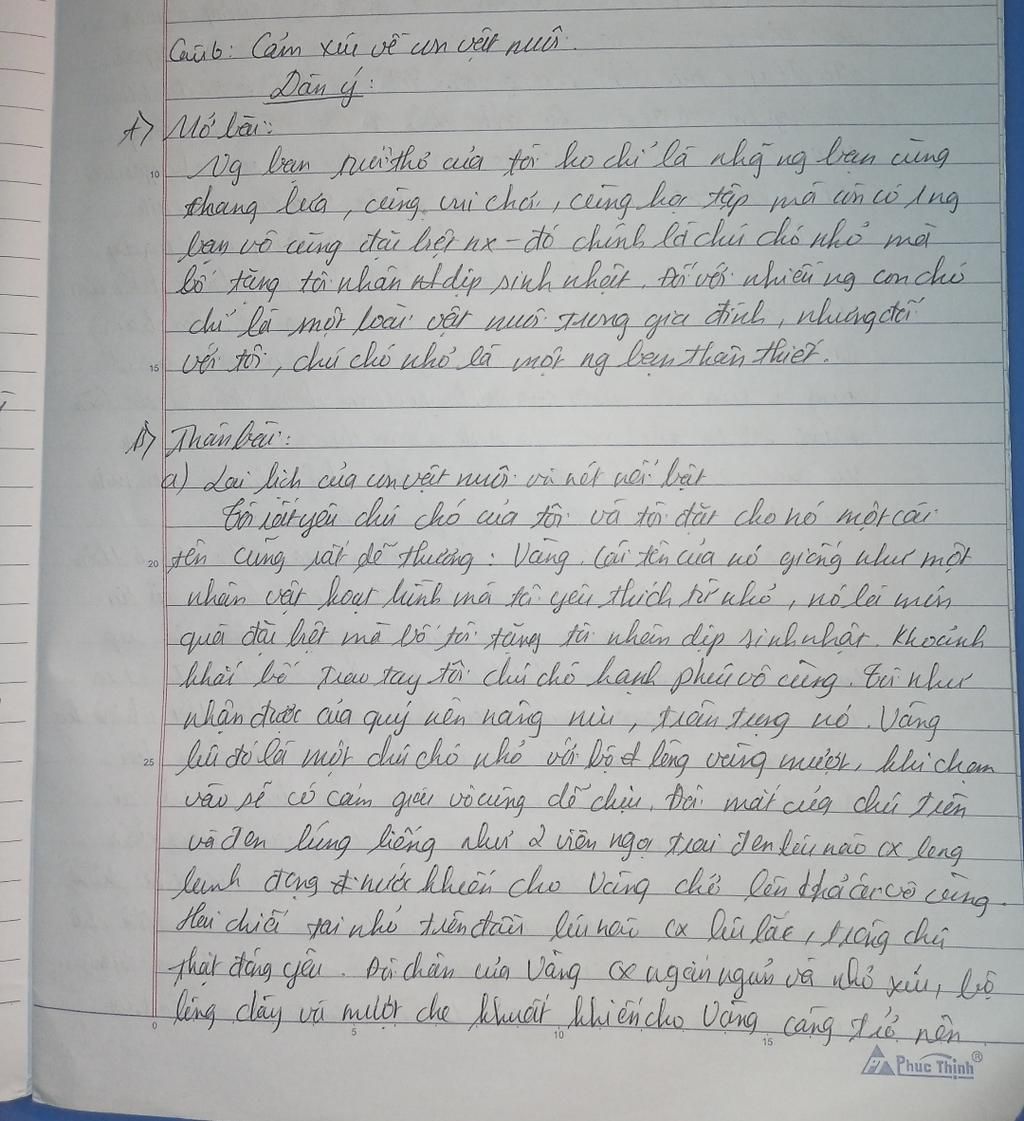 Câu 6: Cảm xúc về con vật nuôi.
Dàn ý:
A) Mở bài:
Ng bạn tuổi thơ của tôi ko chỉ là những ng bạn cùng
trang lứa, cùng vui chơi, cùng học tập mà còn có 1 ng
bạn vô cùng đặc biệt nx - đó chính là chú chó nhỏ mà
bố tặng tôi nhân dịp sinh nhật. Đối với nhiều ng con chó
chỉ là một loài vật nuôi trong gia đình, nhưng đối
với tôi, chú chó nhỏ là một ng bạn thân thiết.
B) Thân bài:
a) Lai lịch của con vật nuôi và nét nổi bật
Tôi rất yêu chú chó của tôi và tôi đặt cho nó một cái
tên cũng rất dễ thương: Vàng. Cái tên của nó giống như một
nhân vật hoạt hình mà tôi yêu thích từ nhỏ, nó là món
quà đặc biệt mà bố tôi tặng tôi nhân dịp sinh nhật. Khoảnh
khắc bố trao tay tôi chú chó hạnh phúc vô cùng. Tôi như
nhận được của quý nên nâng niu, trân trọng nó. Vàng
lúc đó là một chú chó nhỏ với bộ lông vàng mượt, khi chạm
vào sẽ có cảm giác vô cùng dễ chịu. Đôi mắt của chú tròn
và đen lúng liếng như 2 viên ngọc trai đen lúc nào cx long
lanh đọng nước khiến cho Vàng trở lên khả ái vô cùng.
Hai chiếc tai nhỏ trên đầu lúc nào cx lúc lắc, trông chú
thật đáng yêu. Đôi chân của Vàng cx ngắn ngủn và nhỏ xíu, bộ
lông dày và mượt che khuất khiến cho Vàng càng trở nên
0 5 10 15
10
15
20
25
Phuc Thinh®